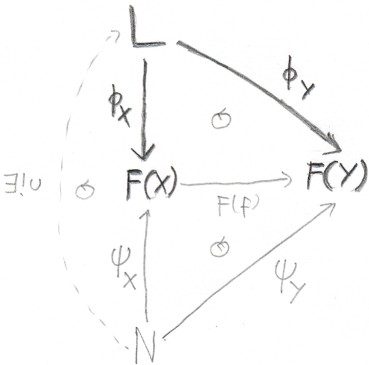 L
ϕX
ϕY
F(X)
F(Y)
F(f)
∃!u
ψX
ψY
N